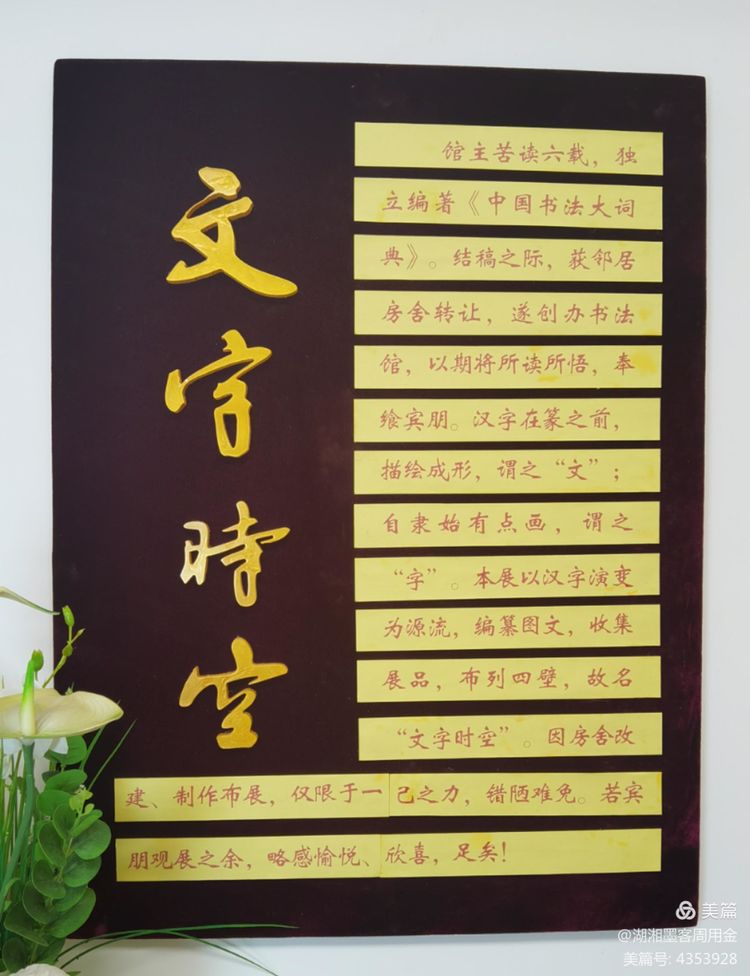 文字時空
馆主苦读六载，独
立编著《中国书法大词
典》。结稿之际，获邻居
房舍转让，遂创办书法
馆，以期将所读所悟，奉
飨宾朋。汉字在篆之前，
描绘成形，谓之“文”；
自隶始有点画，谓之
“字”。本展以汉字演变
为源流，编纂图文，收集
展品，布列四壁，故名
“文字时空”。因房舍改
建、制作布展，仅限于一己之力，错陋难免。若宾
朋观展之余，略感愉悦、欣喜，足矣！
美篇
@湖湘墨客周用金
美篇号: 4353928